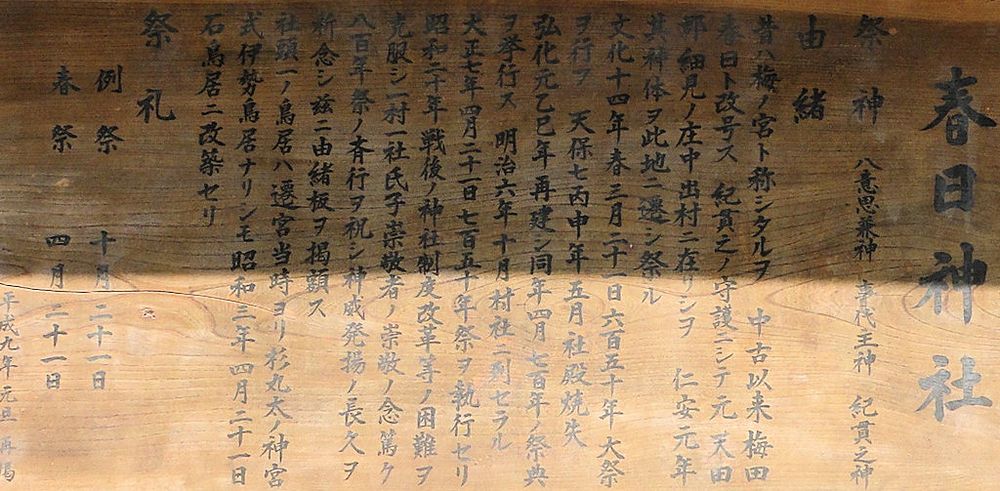 春日神社
祭神 八意思兼神 事代主神 紀貫之神
由緒
昔ハ梅ノ宮ト称シタルヲ 中古以来梅田
春日ト改号ス 紀貫之ノ守護ニシテ元 天田
郡細見ノ庄中出村ニ在リシヲ 仁安元年
其神体ヲ此地ニ遷シ祭ル
文化十四年春三月二十一日六百五十年大祭
ヲ行ヲ 天保七丙申年五月社殿焼失
弘化元乙巳年再建シ同年四月七百年ノ祭典
ヲ挙行ス 明治六年十月村社ニ列セラル
大正七年四月二十一日七百五十年祭ヲ執行セリ
昭和二十年戦後ノ神社制度改革等ノ困難ヲ
克服シ一村一社氏子崇敬者ノ崇敬ノ念篤ク
八百年祭ノ斉行ヲ祝シ神威発揚ノ長久ヲ
祈念シ茲ニ由緒板ヲ掲額ス
社頭一ノ鳥居ハ遷宮当時ヨリ杉丸太ノ神宮
式伊勢鳥居ナリシモ昭和三年四月二十一日
石鳥居ニ改築セリ
祭礼
例祭 十月二十一日
春祭 四月二十一日
平成九年元旦 再掲